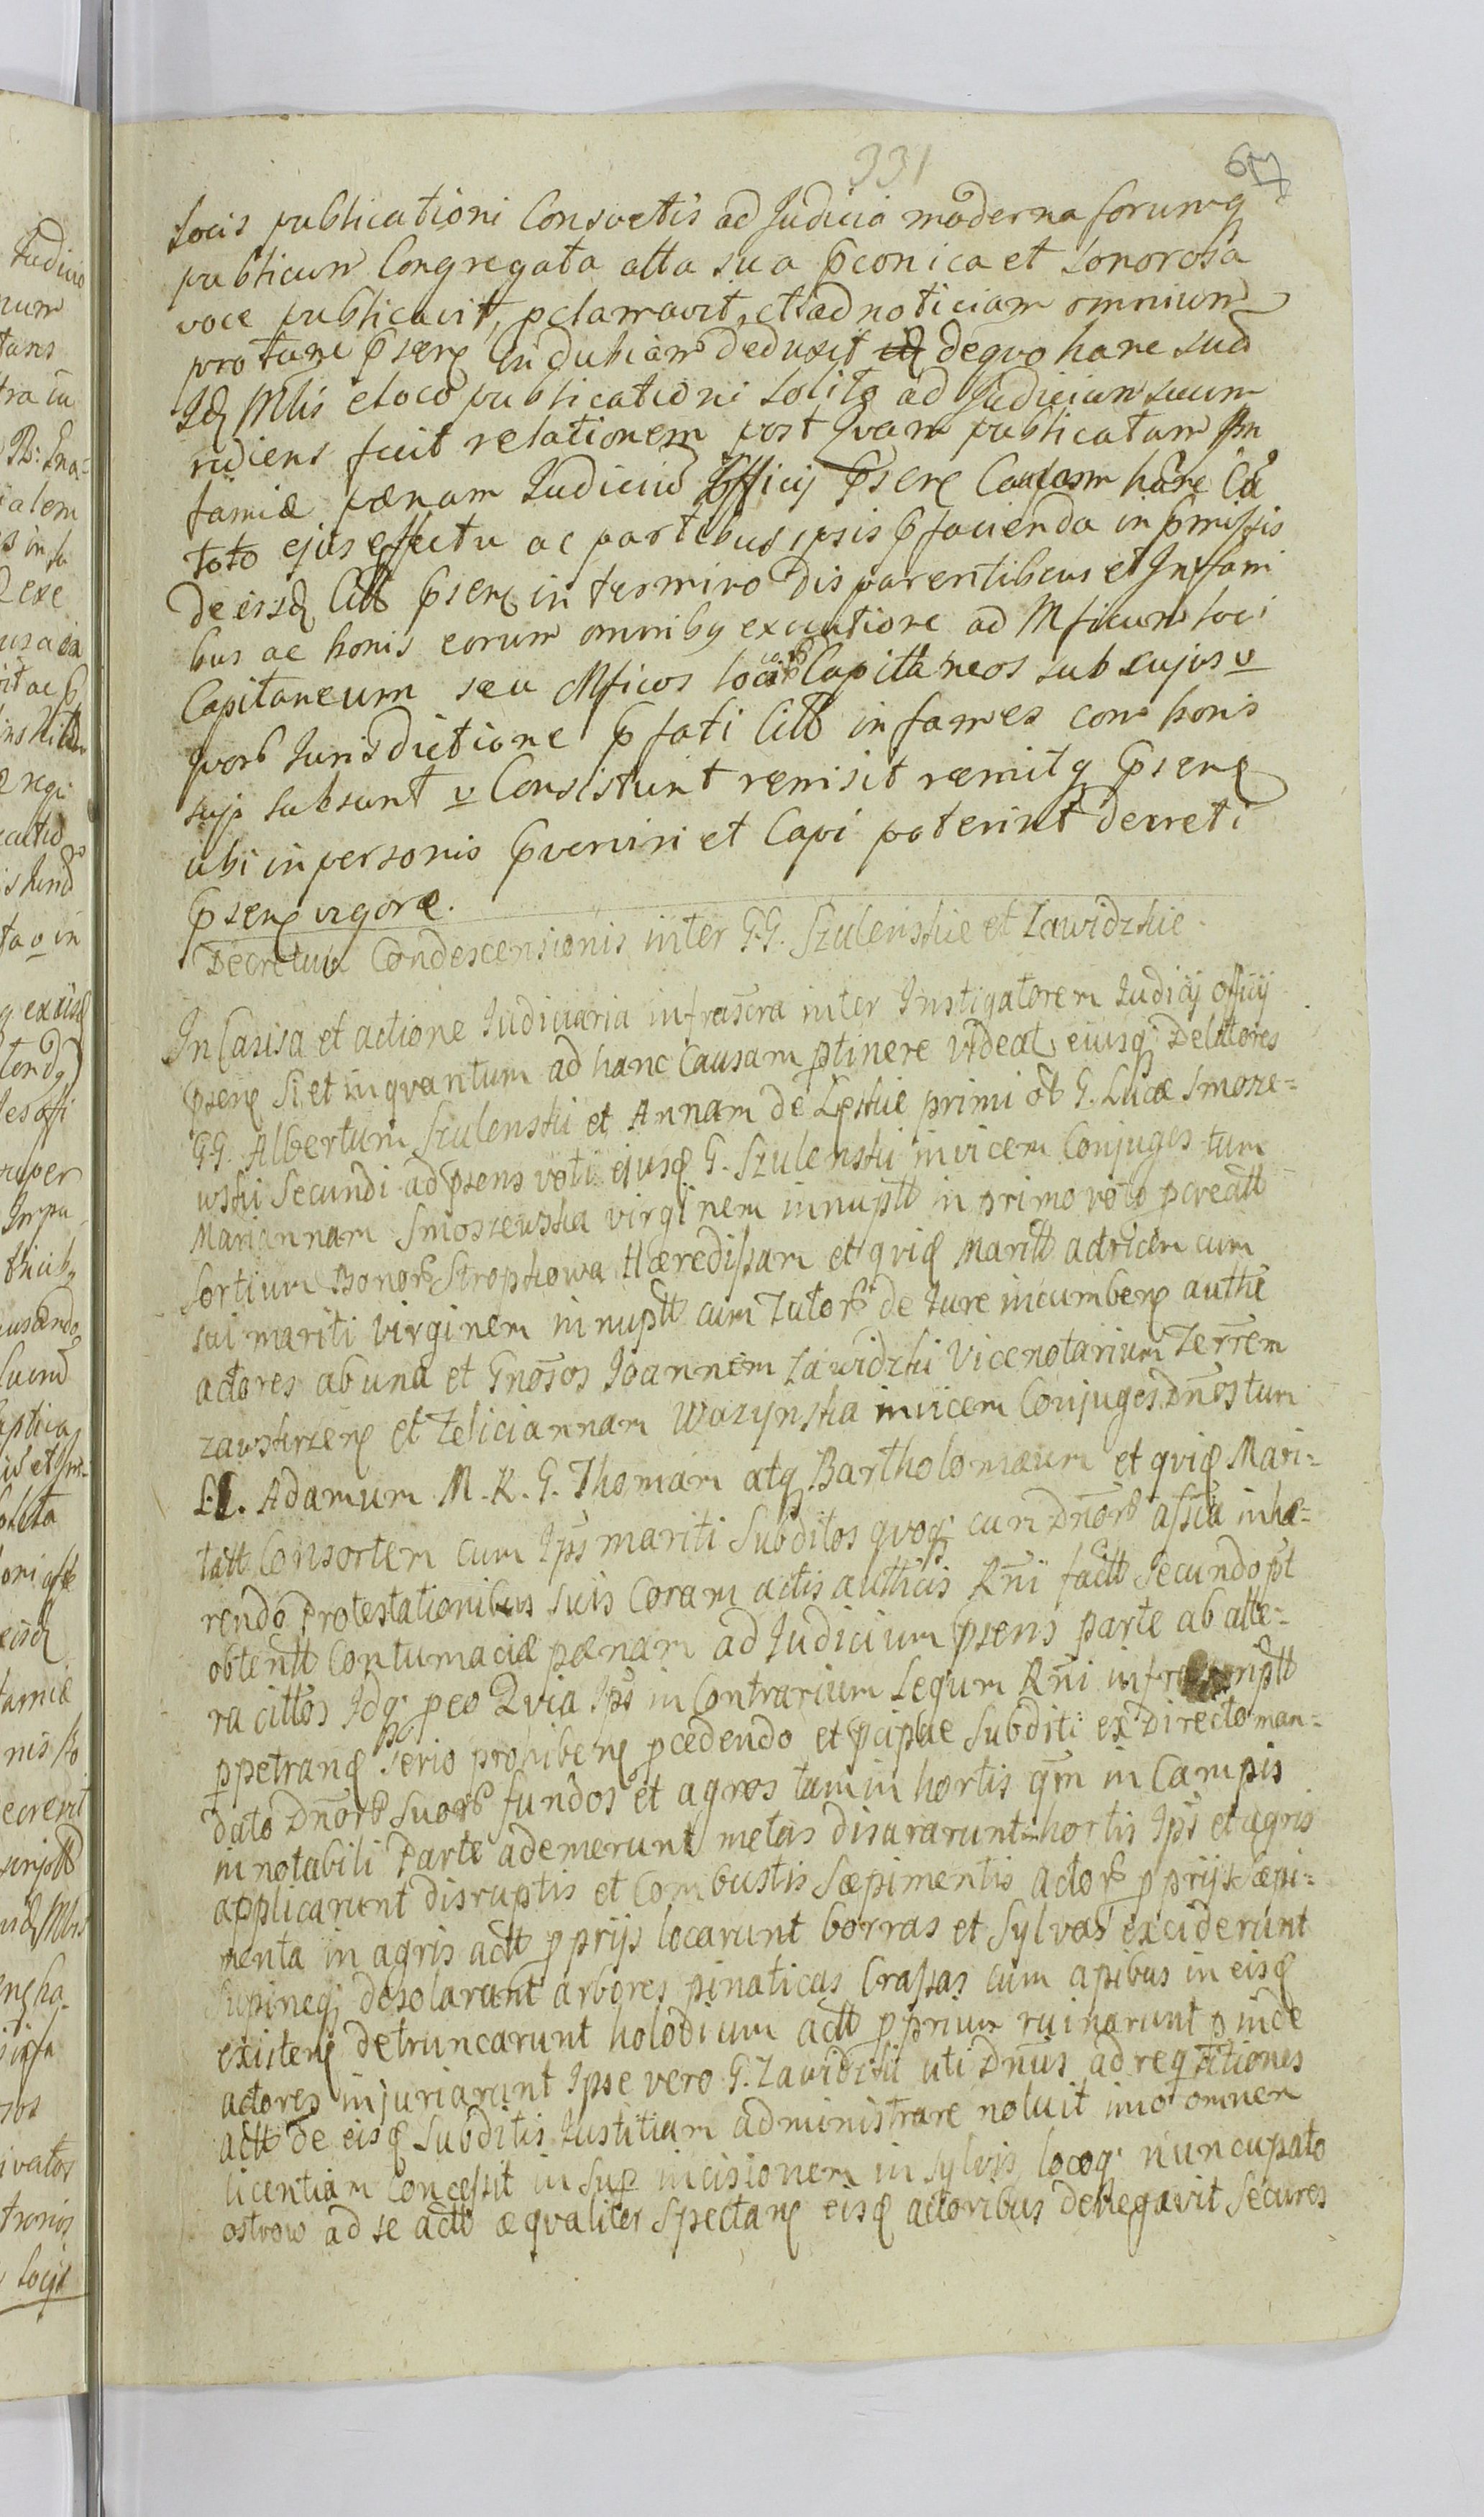 331
617
locis publicationi Consvetis ad Judicia moderna forumq
publicum Congregata alta sua pconica et sonorosa
voce publicavit, pclamavit, et ad noticiam omnium
protune psene indubiam deduxit de quo hanc sua
Idq Mlis eloco publicationi solito ad Judicium suum
rediens fecit relationem post qvam publicatam In
famiæ pænam Judicium Officij psene Causam hanc Cu
toto ejus effectu ac partibus ipsis pfacienda in pmissis
de eisdq Citt psenq in termino disparentibus et Infami
bus ac bonis eorum omniby executione ad Mficum loci
Capitaneum seu Mficos locorum Capitaneos sub cujus v
qvorb Jurisdictione pfati Citt infames cum bonis
suys subsunt v Consistunt remisit remitq psenq
ubi in personis pveniri et Capi poterint decreti
psenq vigore.
Decretum Condescensionis inter G.G. Szulenskie et Zawidzkie.
In Causa et actione Judiciaria infrascra inter Instigatorem Judicij officij
psenq si et inqvantum ad hanc Causam ptinere videat, eiusq. Delatores
G.G. Albertum Szulenski et Annam de Lęskie primi ot G. Lucæ Smosze=
wski Secundi ad psens voti ejusq G. Szulenski invicem Conjuges tum
Mariannam Smoszewska virginem innuptt in primo voto pcreatt
sortium Bonorb Stropkowa Hæredissam et qviq Maritt actricem cum
sui mariti virginem innuptt cum Tutorb de Jure incumbenq authe
actores ab una et Gnosos Joannem Zawidzki Vicenotarium Terrem
zawskrzenq et Feliciannam Wazynska invicem Conjuges Dnos tum
L.L. Adamum M. K. G. Thomam atq Bartholomæum et qviq Mari=
tatt Consortem cum Ips mariti Subditos qvoq cum Dnorb assia inhæ=
rendo Protestationibus suis Coram actis authcis Rni factt Secundo pt
obtentt Contumaciæ pænam ad Judicium psens parte ab alte=
ra cittos Idq. peo Qvia Ips in Contrarium Legum Rni infrascriptt
ppetranq serio prohibenq pcedendo et pcipue subditi ex Directo man=
dato Dnorb Suorb fundos et agros tam in hortis qm in Campis
in notabili Parte ademerunt metas disararunt hortis Ips et agris
applicarunt disruptis et Combustis Sæpimentis actorb pprijs sæpi=
menta in agris actt pprijs locarunt borras et Sylvas exciderunt
Supineq desolarunt arbores pinaticas Crassas cum apibus in eisq
existenq detruncarunt holodium actt pprium ruinarunt p inde
actores injuriarunt Ipse vero G. Zawidzki uti Dnus ad reqtitiones
actt de eisq Subditis Justitiam administrare noluit imo omnem
licentiam Concessit in Sup incisionem in sylvis locoq. nuncupato
ostrow ad se actt æqvaliter Spectanq eisq actoribus denegavit Secures